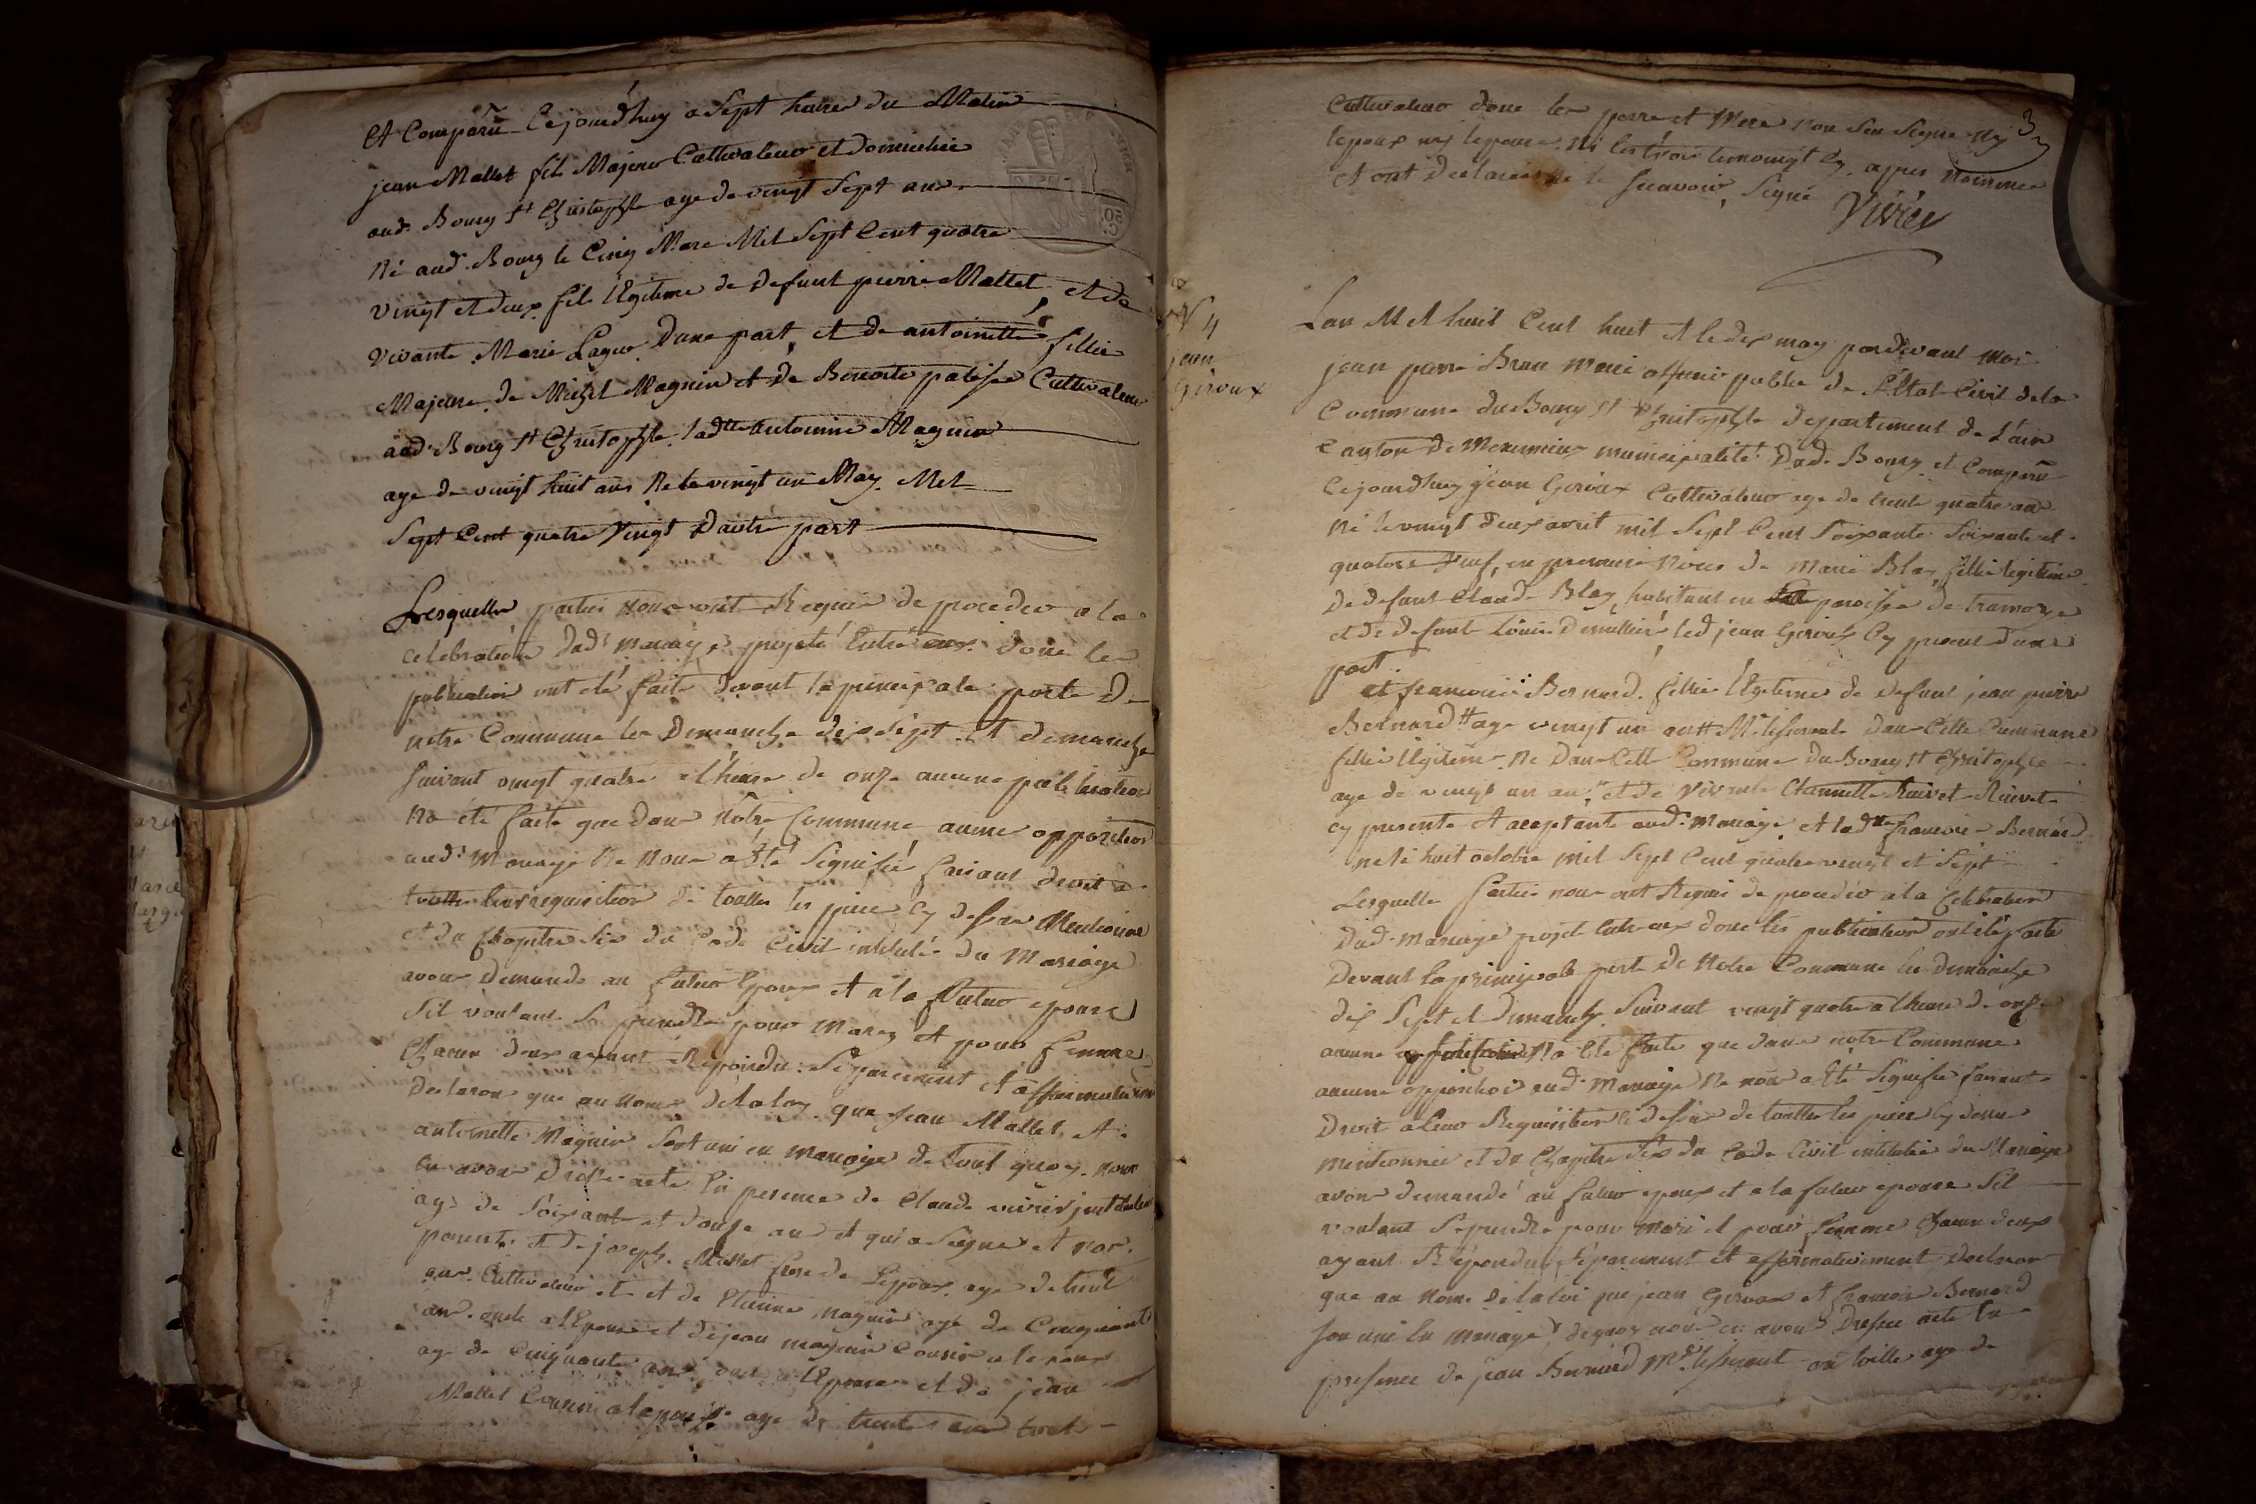 et Comparu Cejourdhuy a Sept heures du Matin
jean Mallet fils Majeur Cultivateur et domicilié
aud. Bourg St Christophle age de vingt Sept ans
Né aud. Bourg le Cinq Mars Mil Sept Cent quatre
vingt et deux fils légitime de defunt pierre Mallet et de
vivante Marie Dune part, et de antoinette fillie
Majeure de Michel Magnin et de Benoite Cultivateur
aud. Bourg St Christophle ladtte antoinine Magnin
age de vingt huit ans Né le vingt un May Mil
Sept Cent quatre Vingt Dautre part
Lesquelles parties Nous ont Requis de proceder a la
celebration dud. mariage projeté Entre eux donc les
publication ont été faite devant la principale porte de
notre Commune les Dimanche dix sept et dimanche
Suivant vingt quatre a lheure de onze aucune publication
Na été faite que dans Nôtre Commune aucune opposition
aud. Mariage Ne Nous a Eté Signifié faisant droit a
leur requisition de touttes les piece Cy dessus Mentionne
et du Chapitre Six du Code Civil intitulé du Mariage
avons demande au futur Epoux et a la futur epouse
Sil voulant Se prendre pour Mary et pour femme
Chacun deux ayant Repondu Séparement et affirmativement
Declarons que au Nome de la loy que jean Mallet et
antoinette Magnin Sont uni en mariage de tout quoy nous
en avons Dressé acte En presence de Claude vivier
age de Soixante et douze ans et qui a Signé et non
parent et de joseph Mallet frere de Lepoux age de trente
ans Cultivateur et de Etienne magnin age de Cinquante
ans oncle a lEpouse et de jean magnin Cousin a lepouse
age de Cinquante ans a lEpouse et de jean
Mallet Cousin a lepoux age de trente ans tout
Cultivateur donc les perre et Mere non Seu Signe Ny
lepoux ny lepouse Ni les trois temoingt Cy apres Nommee
et ont Declaré ne le Scavoir Signé
Vivier
3
N 4
jean
Girvux
Lan Mil huit Cent huit et le dix may pardevant moi
jean pierre Brun Maire officier public de l'Etat Civil de la
Commune du Bourg St Christophle departement de L'ain
Canton de Meximieux municipalité Dud. Bourg et Comparu
Cejourdhuy jean Gervux Cultivateur age de trent quatre ans
Né le vingt deux avril mil Sept Cent Soixante Soixante et
quatorse Veuf en premiere Noces de Marie Blay fillie légitime
De defunt Claude Blay habitant en paroisse de tramoye
et de defunt Louise Demullier led jean Gervux Cy present dune
part.
et francoise Bernard fillie légitime de defunt jean pierre
Bernard age vingt un ans Dans Cette Commune
fillie légitime Né Dans Cett Commune du Bourg St Christophle
age de vingt un ans et de vivante Rievet
cy presente et aceptante aud. mariage et ladtte francoise Bernard
Né le huit octobre mil Sept Cent quatre vingt et Sept
Lesquelle parties nous ont Requis de proceder a la Celebration
Dud. mariage projet Entre eux donc les publication ont été faite
Devant la principale porte de Notre Commune les dimanche
dix Sept et dimanche Suivant vingt quatre a lheure de onze
aucune Na Eté faite que dans notre Commune
aucune opposition aud. Mariage Ne nous a Eté Signifié faisant
Droit a Leur Requisition de touttes les piece Cy dessus
mentionnée et du Chapitre Six du Code Civil intitulé du Mariage
avons demandé au futur epoux et a la future epouse Sil
voulant Se prendre pour mari et pour femme Chacun deux
ayant Répondus Séparement et affirmativement Declaron
que au Nome de la loi que jean Gervux et francoise Bernard
Son uni En mariage de quoy nous en avons Dressé acte En
presence de jean Bernard age de